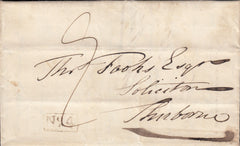 Thos Fooks Esqr
Solicitor
Sherborne
No. 4